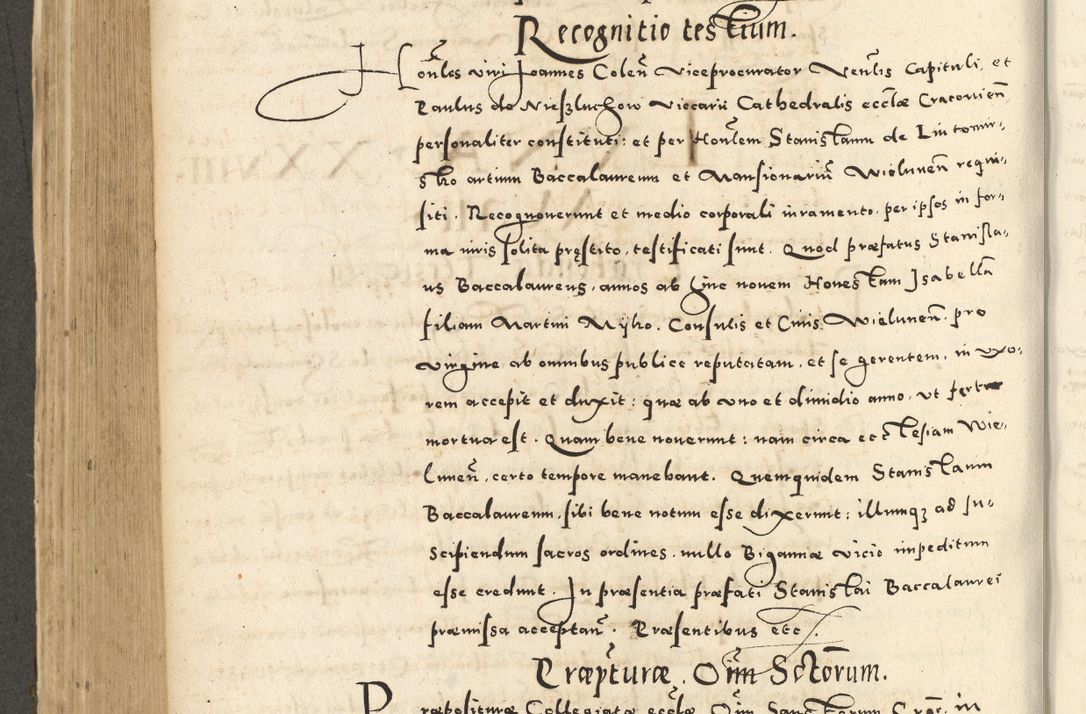 Recognitio testium.
Honles viri Joannes Colen Viceprocurator Venlis Capituli, et
Paulus de Nieszluchow Viccarii Cathedralis ecclæ Cracovien
personaliter constituti: et per Honlem Stanislaum de Lutomir-
sko artium Baccalaureum et Mansionarium Wielunen requi-
siti. Recognoverunt et medio corporali iuramento, per ipsos in for-
ma iuris solita præstito, testificati sunt. Quod præfatus Stanisla-
us Baccalaureus, annos ab hinc novem Honestam Isabellam
filiam Martini Mysko, Consulis et Civis Wielunen, pro
virgine ab omnibus publice reputatam, et se gerentem, in uxo-
rem accepit et duxit: quæ ab uno et dimidio anno, ut fertur
mortua est. Quam bene noverunt: nam circa ecclesiam Wie-
lunen, certo tempore manebant. Quemquidem Stanislaum
Baccalaureum, sibi bene notum esse dixerunt: illumq3 ad su-
scipiendum sacros ordines, nullo Bigamiæ vicio impeditum
esse credunt. In præsentia præfati Stanislai Baccalaurei
præmissa acceptan. Præsentibus etc.
Præpturæ. Oim Sctorum.
Præposituræ Collegiatæ ecclæ Oim Sanctorum Crac. in